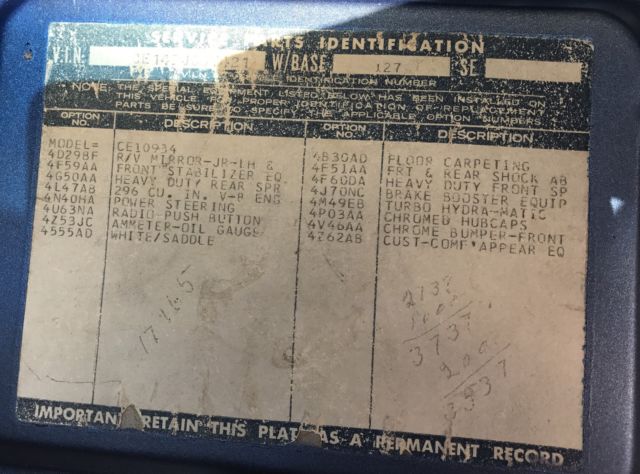 SERVICE PARTS IDENTIFICATION
V.I.N. W/BASE 127 SE
IDENTIFICATION NUMBER
NOTE: THE SPECIAL EQUIPMENT LISTED BELOW HAS BEEN INSTALLED ON
THIS VEHICLE. FOR PROPER IDENTIFICATION OF REPLACEMENT
PARTS BE SURE TO SPECIFY THE APPLICABLE OPTION NUMBERS
OPTION NO. DESCRIPTION OPTION NO. DESCRIPTION
MODEL= CE10934
4D29BF R/V MIRROR-JR-LH & 4B30AD FLOOR CARPETING
4F59AA FRONT STABILIZER EQ 4F51AA FRT & REAR SHOCK AB
4G50AA HEAVY DUTY REAR SPR 4F60DA HEAVY DUTY FRONT SP
4L47AB 296 CU. IN. V-8 ENG 4J70NC BRAKE BOOSTER EQUIP
4N40HA POWER STEERING 4M49EB TURBO HYDRA-MATIC
4U63NA RADIO-PUSH BUTTON 4P03AA CHROMED HUBCAPS
4Z53JC AMMETER-OIL GAUGE 4V46AA CHROME BUMPER-FRONT
4555AD WHITE/SADDLE 4Z62AB CUST-COMF'APPEAR EQ
3737
200
3937
IMPORTANT RETAIN THIS PLATE AS A PERMANENT RECORD